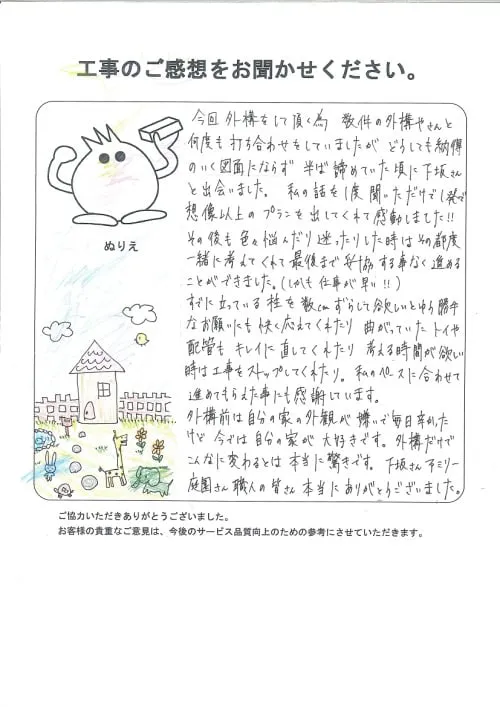 工事のご感想をお聞かせください。
今回 外構をして頂く為 数件の外構やさんと
何度も打ち合わせをしていましたが どうしても納得
のいく図面にならず 半ば諦めていた頃に下坂さん
と出会いました。 私の話を1度聞いただけで1発で
想像以上のプランを出してくれて感動しました!!
その後も色々悩んだり迷ったりした時はその都度
一緒に考えてくれて最後まで妥協する事なく進める
ことができました。(しかも仕事が早い!!)
すでに立っている柱を数cmずらして欲しいとゆう勝手
なお願いにも快く応えてくれたり 曲がっていたトイや
配管も キレイに直してくれたり 考える時間が欲しい
時は工事をストップしてくれたり。私のペースに合わせて
進めてもらえた事にも感謝しています。
外構前は自分の家の外観が嫌いで毎日辛かった
けど 今では自分の家が大好きです。外構だけで
こんなに変わるとは本当に驚きです。下坂さんファミリー
庭園さん 職人の皆さん本当にありがとうございました。
ぬりえ
ご協力いただきありがとうございました。
お客様の貴重なご意見は、今後のサービス品質向上のための参考にさせていただきます。